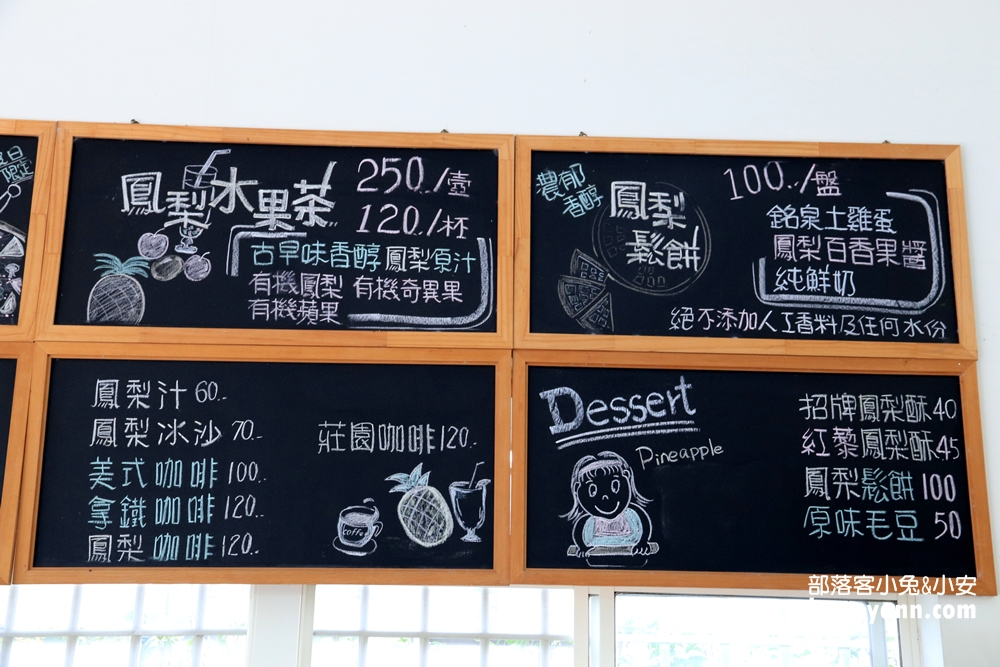 限定
鳳梨水果茶
250../壺
120./杯
古早味香醇鳳梨原汁
有機鳳梨 有機奇異果
有機蘋果
濃郁
香醇
鳳梨
鬆餅
100../盤
銘泉土雞蛋
鳳梨百香果醬
純鮮奶
絕不添加人工香料及任何水份
鳳梨汁 60..
鳳梨冰沙 70..
美式咖啡 100..
拿鐵咖啡 120..
鳳梨咖啡 120..
莊園咖啡120..
coffe
Dessert
Pineapple
招牌鳳梨酥40
紅藜鳳梨酥45
鳳梨鬆餅100
原味毛豆 50
部落客小兔&小安